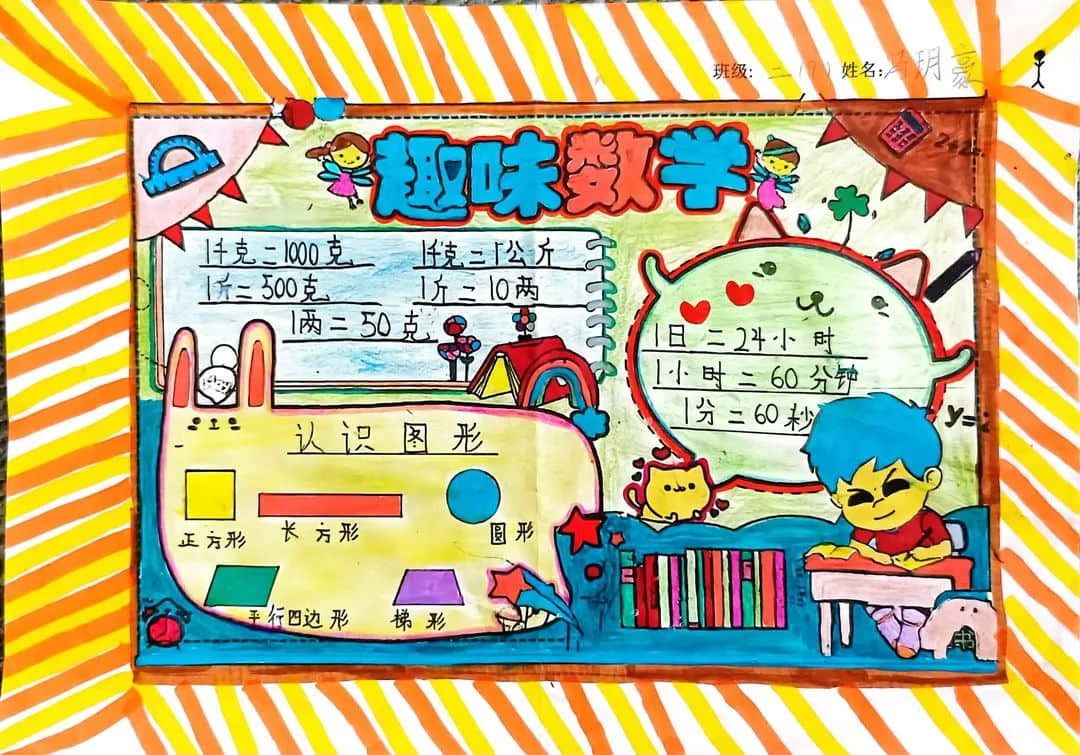 班级: 二(7) 姓名: 冯玥豪
趣味数学
1千克=1000克 1千克=1公斤
1斤=500克 1斤=10两
1两=50克
1日=24小时
1小时=60分钟
1分=60秒
认识图形
正方形 长方形 圆形
平行四边形 梯形
y=
书